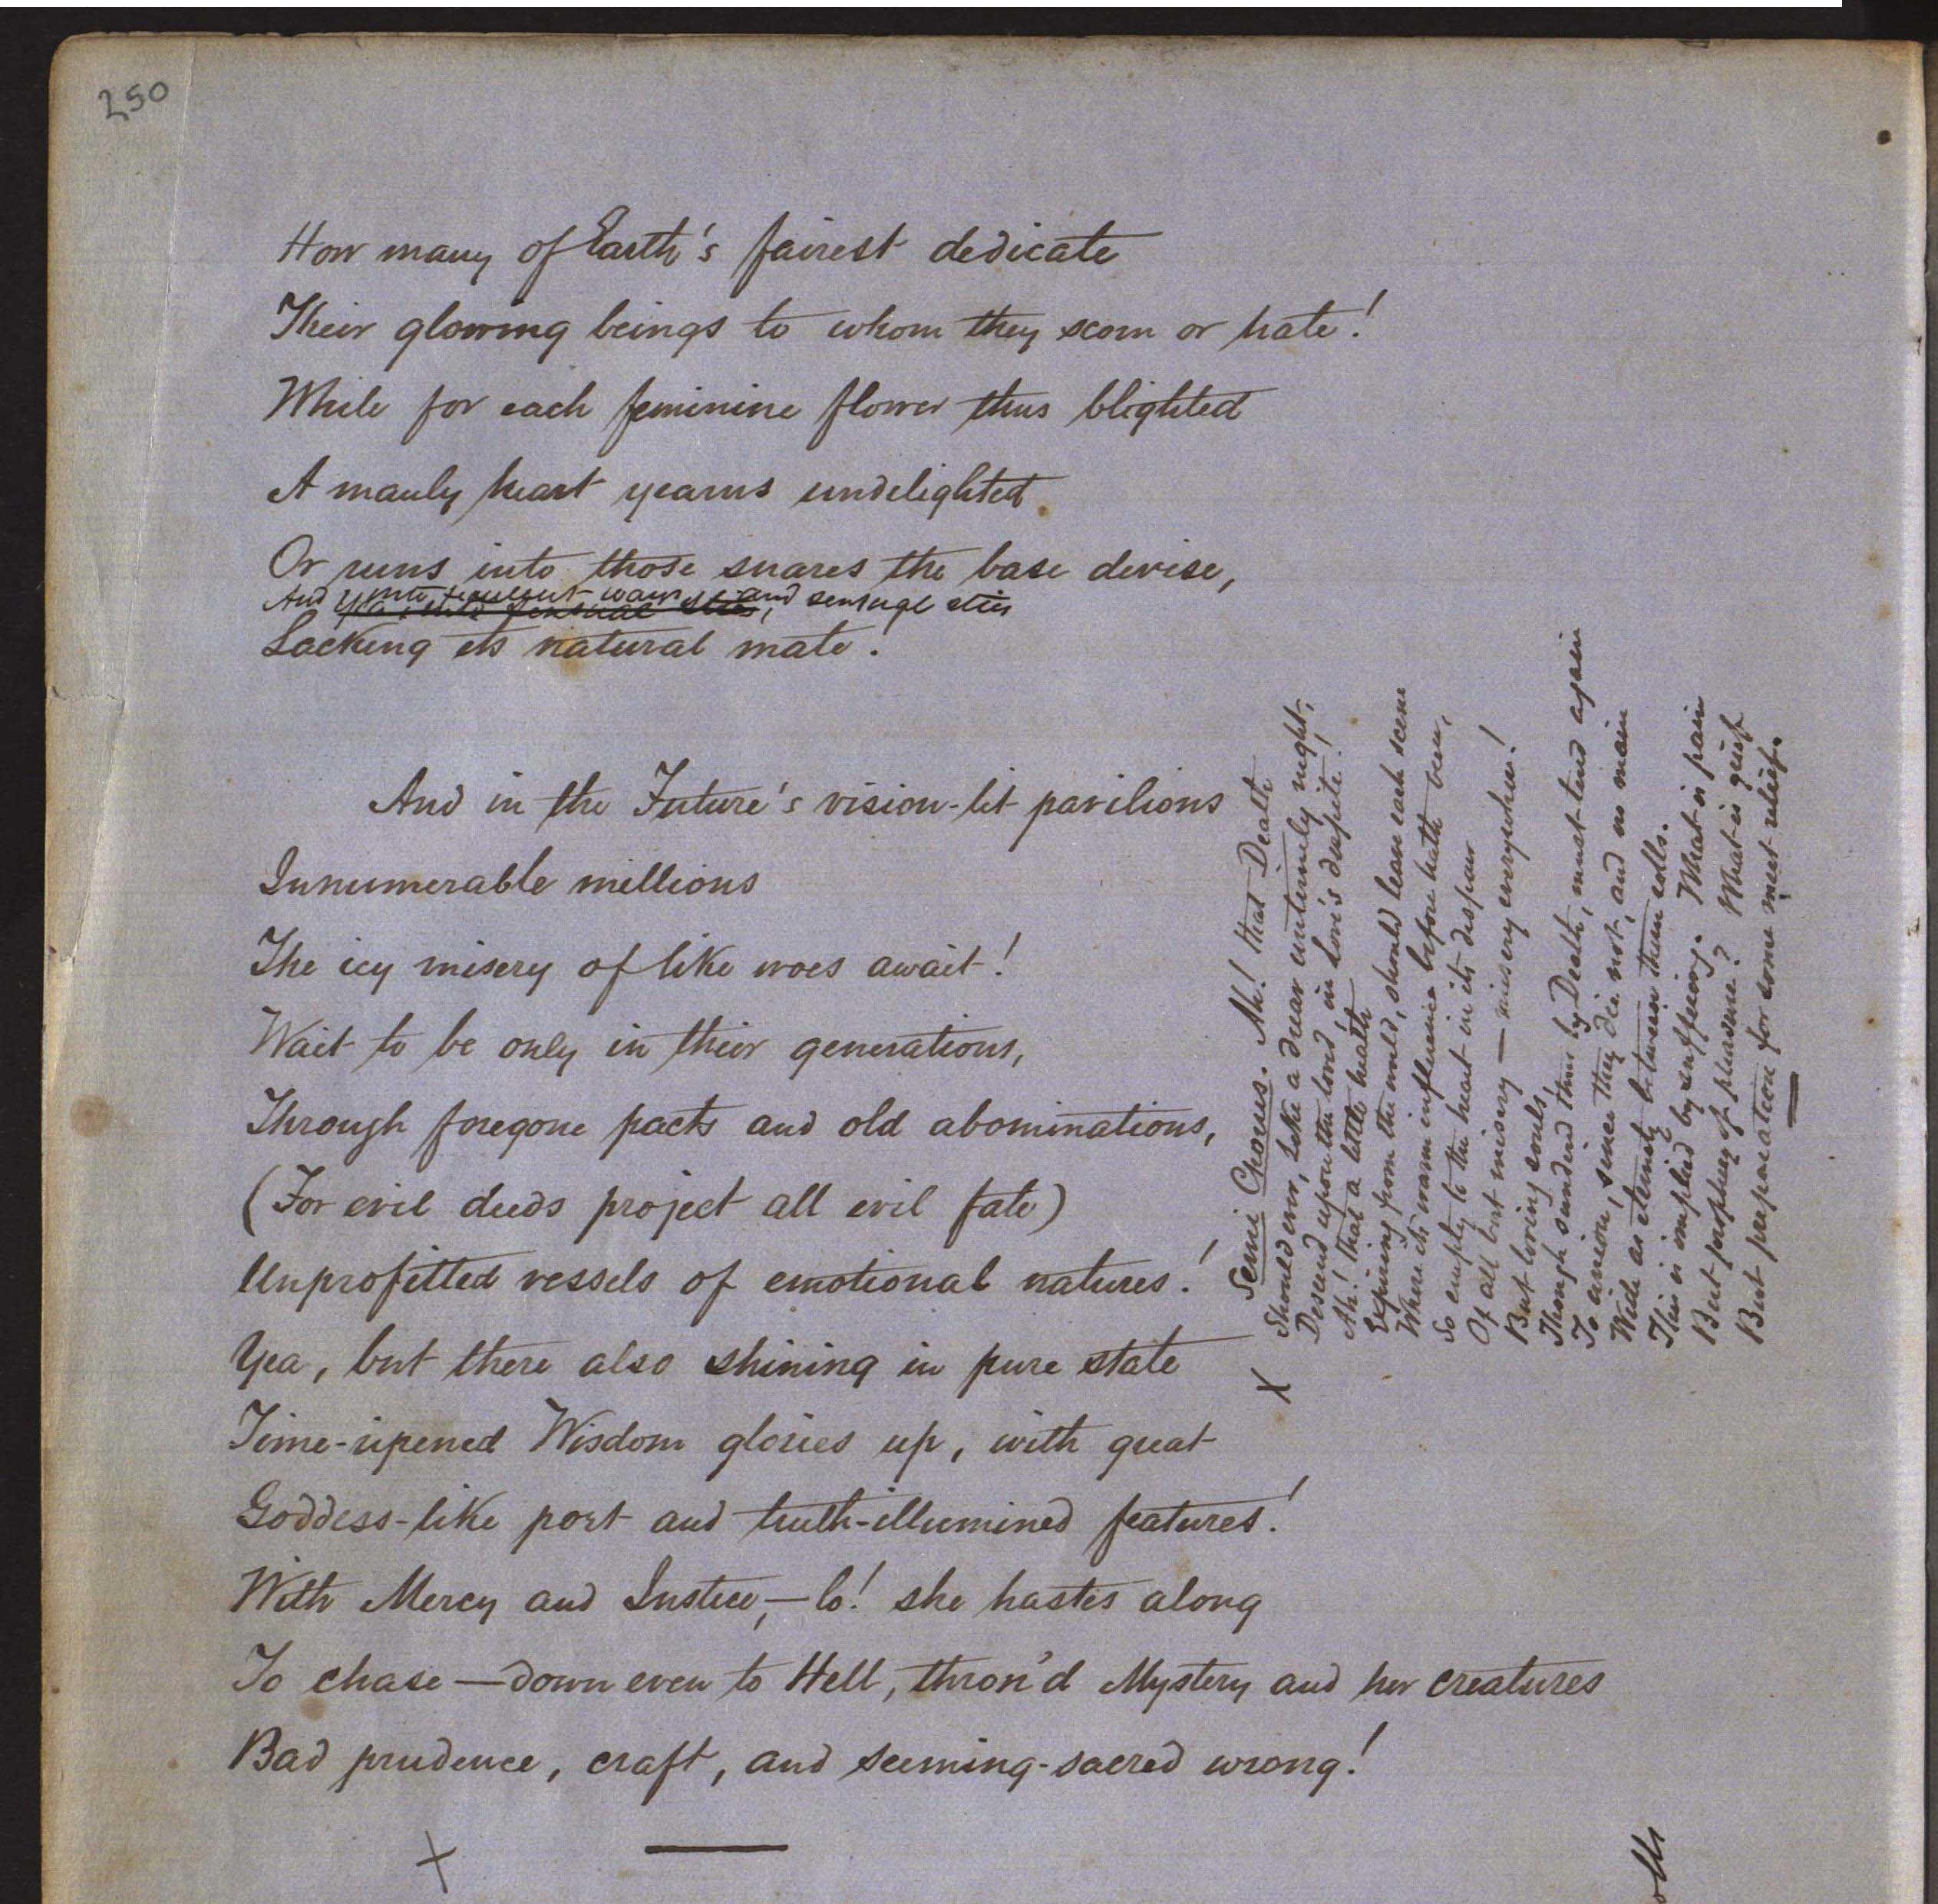 250
How many of Earth's fairest dedicate
Their glowing beings to whom they scorn or hate!
While for each feminine flower thus blighted
A manly heart yearns undelighted
Or runs into those snares the base devise,
And into and sensual sties
Lacking its natural mate.
And in the Future's vision-lit pavilions
Innumerable millions
The icy misery of like woes await!
Wait to be only in their generations,
Through foregone pacts and old abominations,
(For evil deeds project all evil fate)
Unprofitted vessels of emotional natures!
Yea, but there also shining in pure state
Time-ripened Wisdom glories up, with great
Goddess-like port and truth-illumined features!
With Mercy and Justice,—lo! she hastes along
To chase—down even to Hell, thron'd Mystery and her creatures
Bad prudence, craft, and seeming-sacred wrong!
X
X Semi Chorus. Ah! that Death
Should ever, like a drear untimely night,
Descend upon the lov'd in Love's despite!
Ah! that a little breath
Expiring from the world, should leave each scene
Where its warm influence before hath been,
So empty to the heart in its despair
Of all but misery — misery everywhere!
But loving souls,
Though sundered thus by Death, must tend again
To union, since they die not, and no main
Wide as eternity between them rolls.
This is implied by suffering. What is pain
But prophecy of pleasure? What is grief
But preparation for some meet relief.